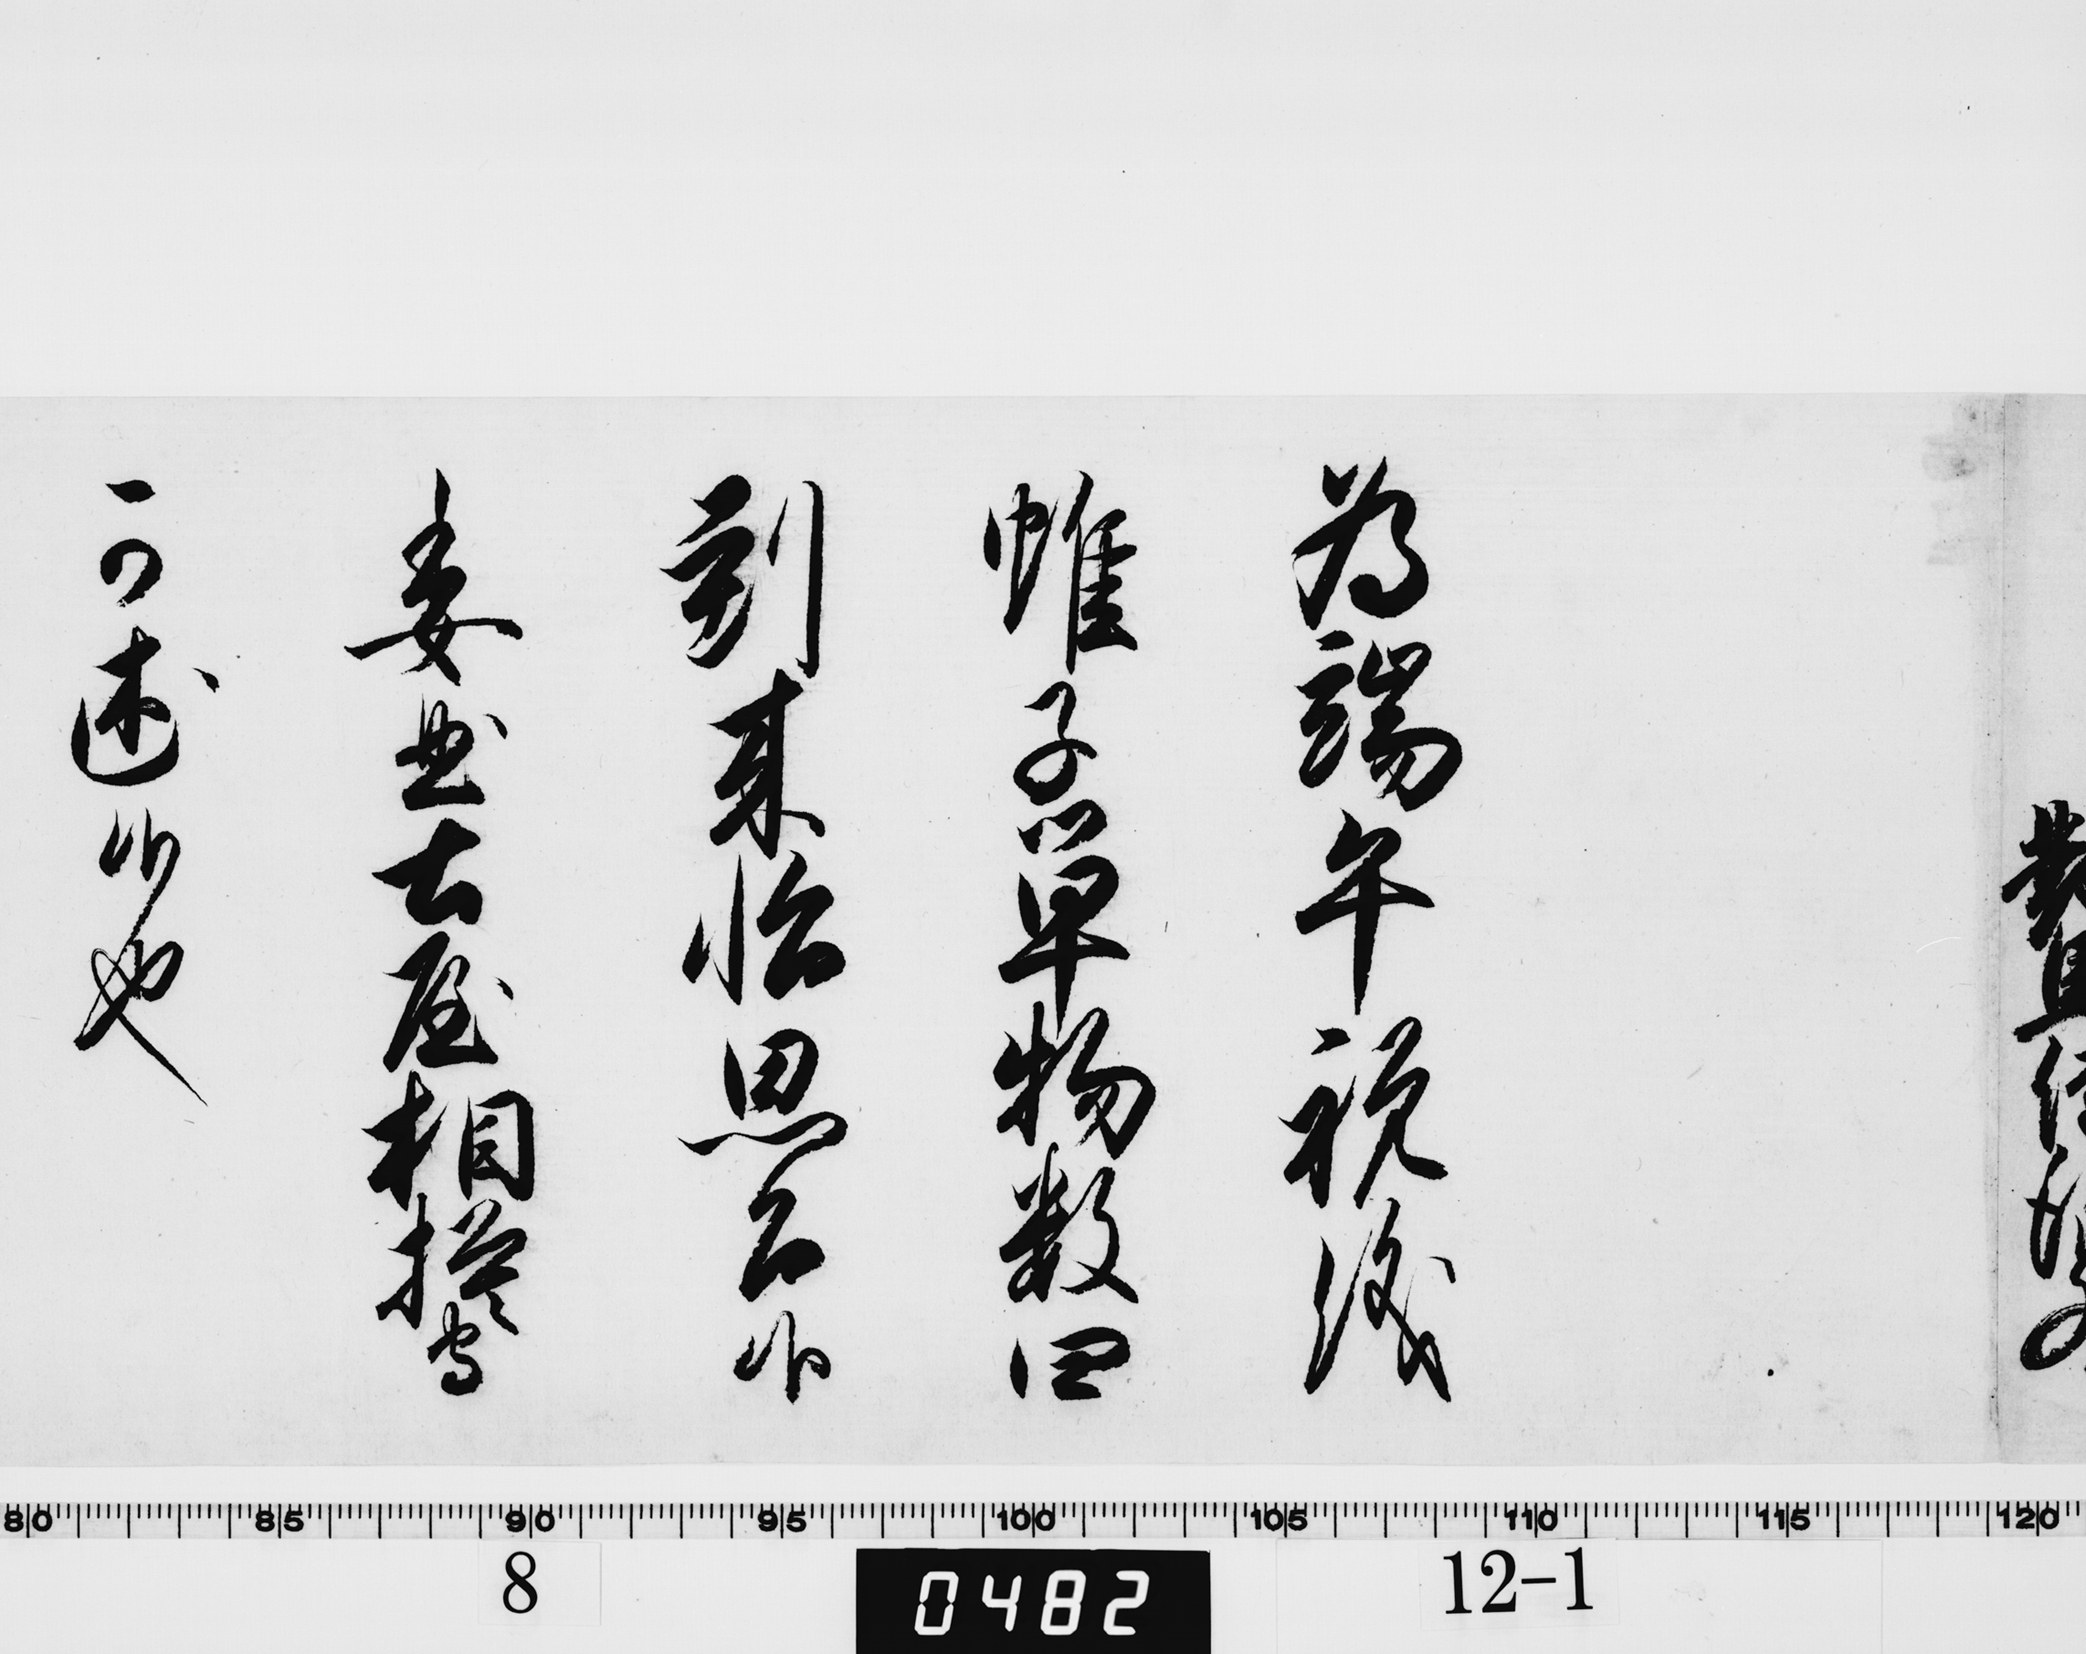 為端午祝儀
帷子単物数四
到来怡思召候
委曲土屋相摸守
可述候也
80 85 90 95 100 105 110 115 120
8
0482
12-1